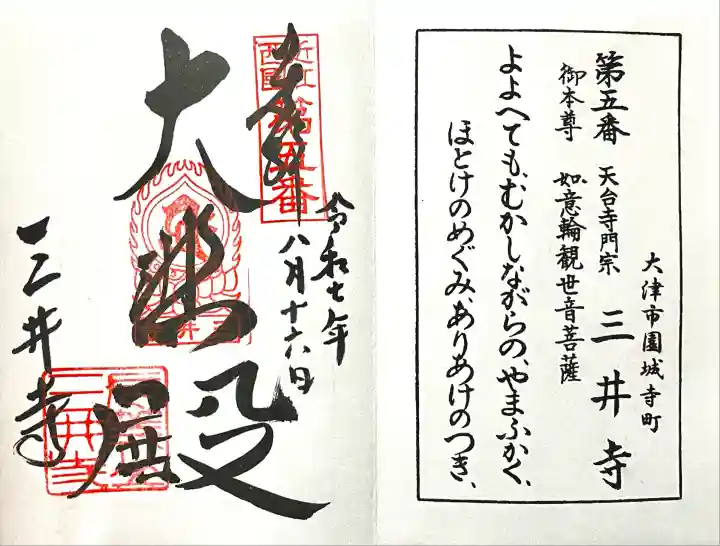 大津市園城寺町
第五番 天台寺門宗 三井寺
御本尊 如意輪観世音菩薩
よよへても、むかしながらの、やまふかく、
ほとけのめぐみ、ありあけのつき、
近江
西国
第五番
奉拝
令和七年
八月十六日
大悲殿
三井寺
三井寺